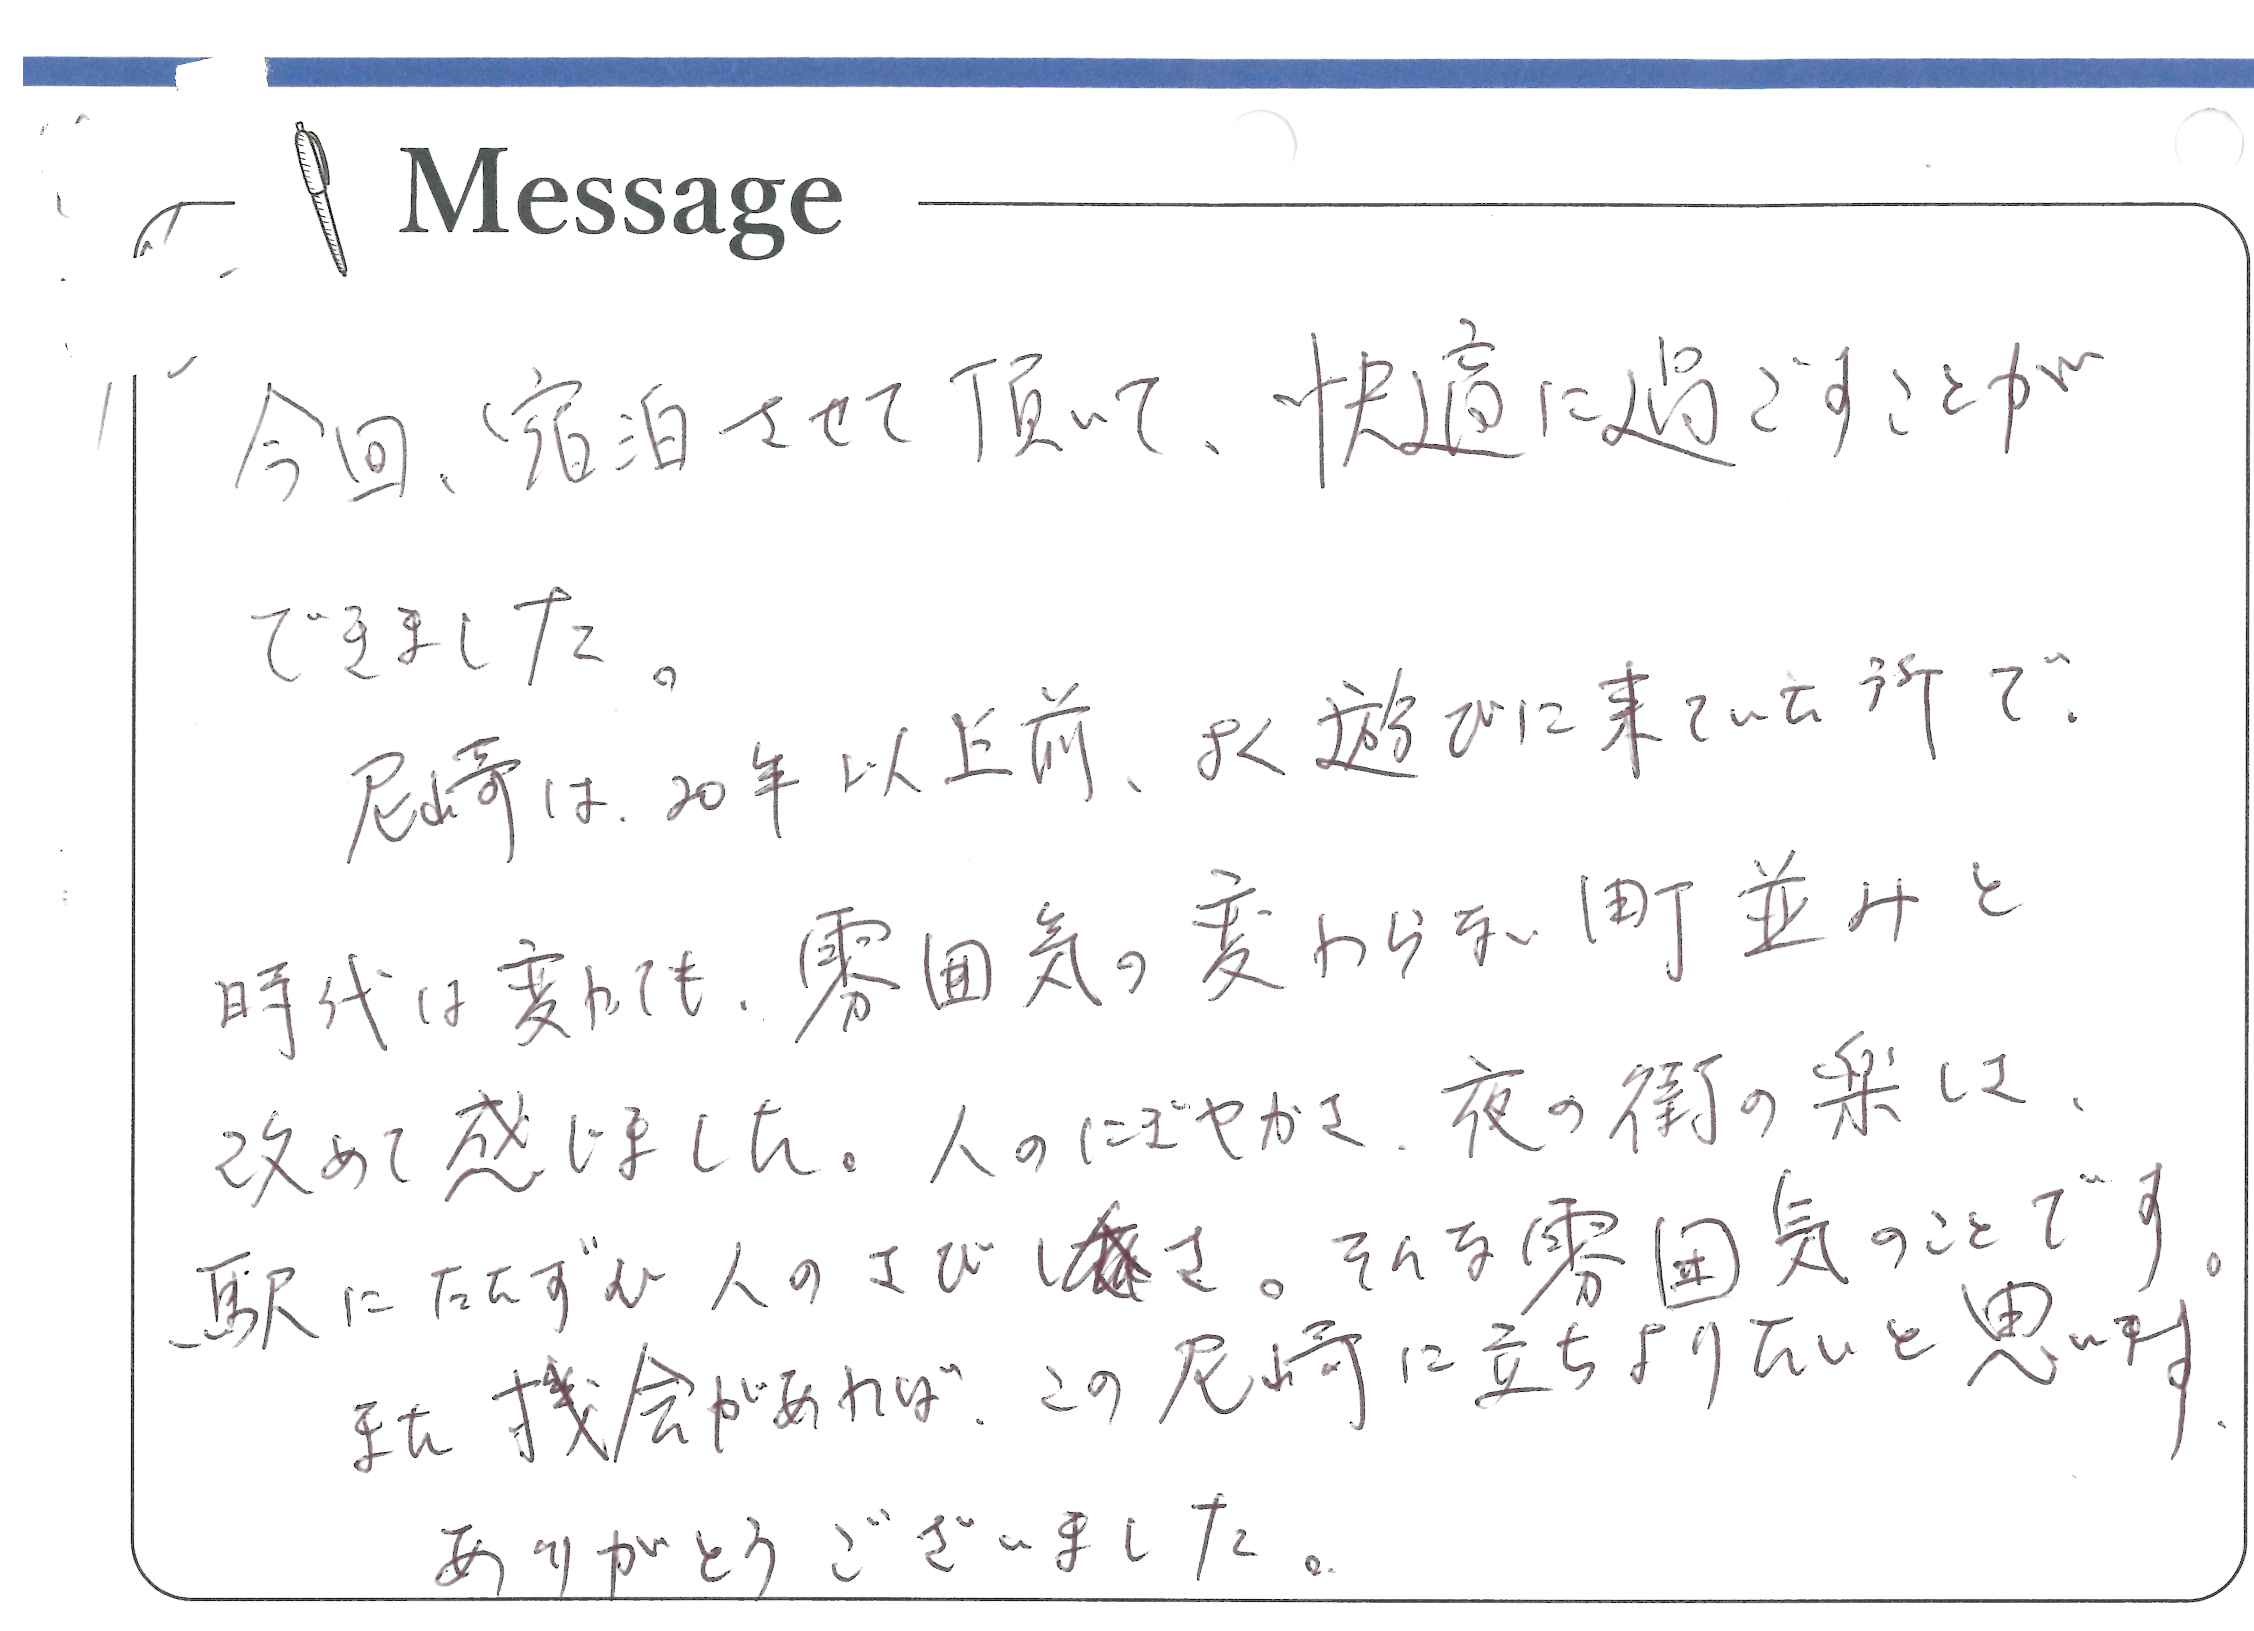 Message
今回、宿泊させて頂いて、快適に過ごすことが
できました。
尼崎は、20年以上前、よく遊びに来ていた所で、
時代は変わても、雰囲気の変わらない町並みと
改めて感じました。人のにぎやかさ、夜の街の楽しさ、
駅にたたずむ人のさびしさ。そんな雰囲気のことです。
また機会があれば、この尼崎に立ちよりたいと思います。
ありがとうございました。